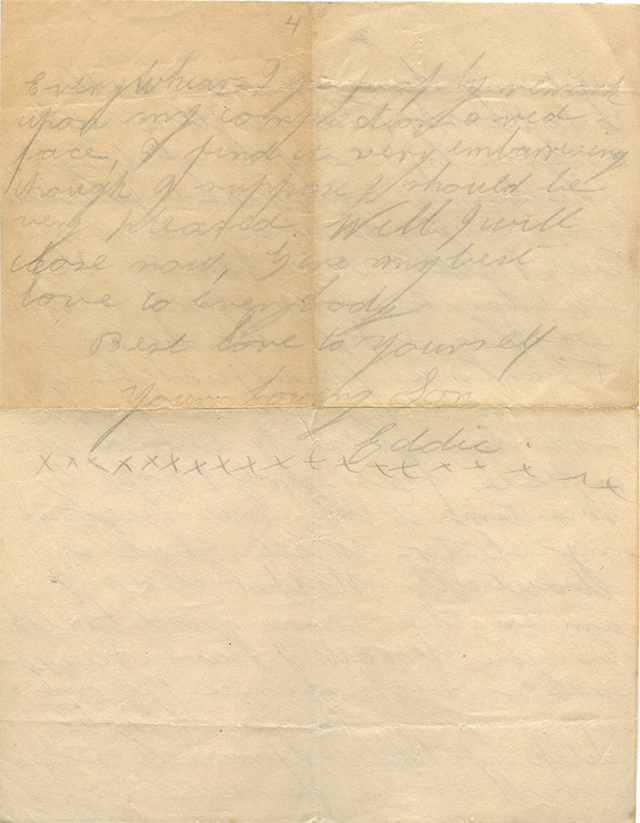 4
Everywhear I go people remark
upon my complection and
face, I find it very embarrising
though I suppose I should be
very pleased. Well I will
close now, Give my best
love to Everybody
Best love to yourself
Your Loving Son
Eddie.
xxxxxxxxxxxxxxxxxxxxx